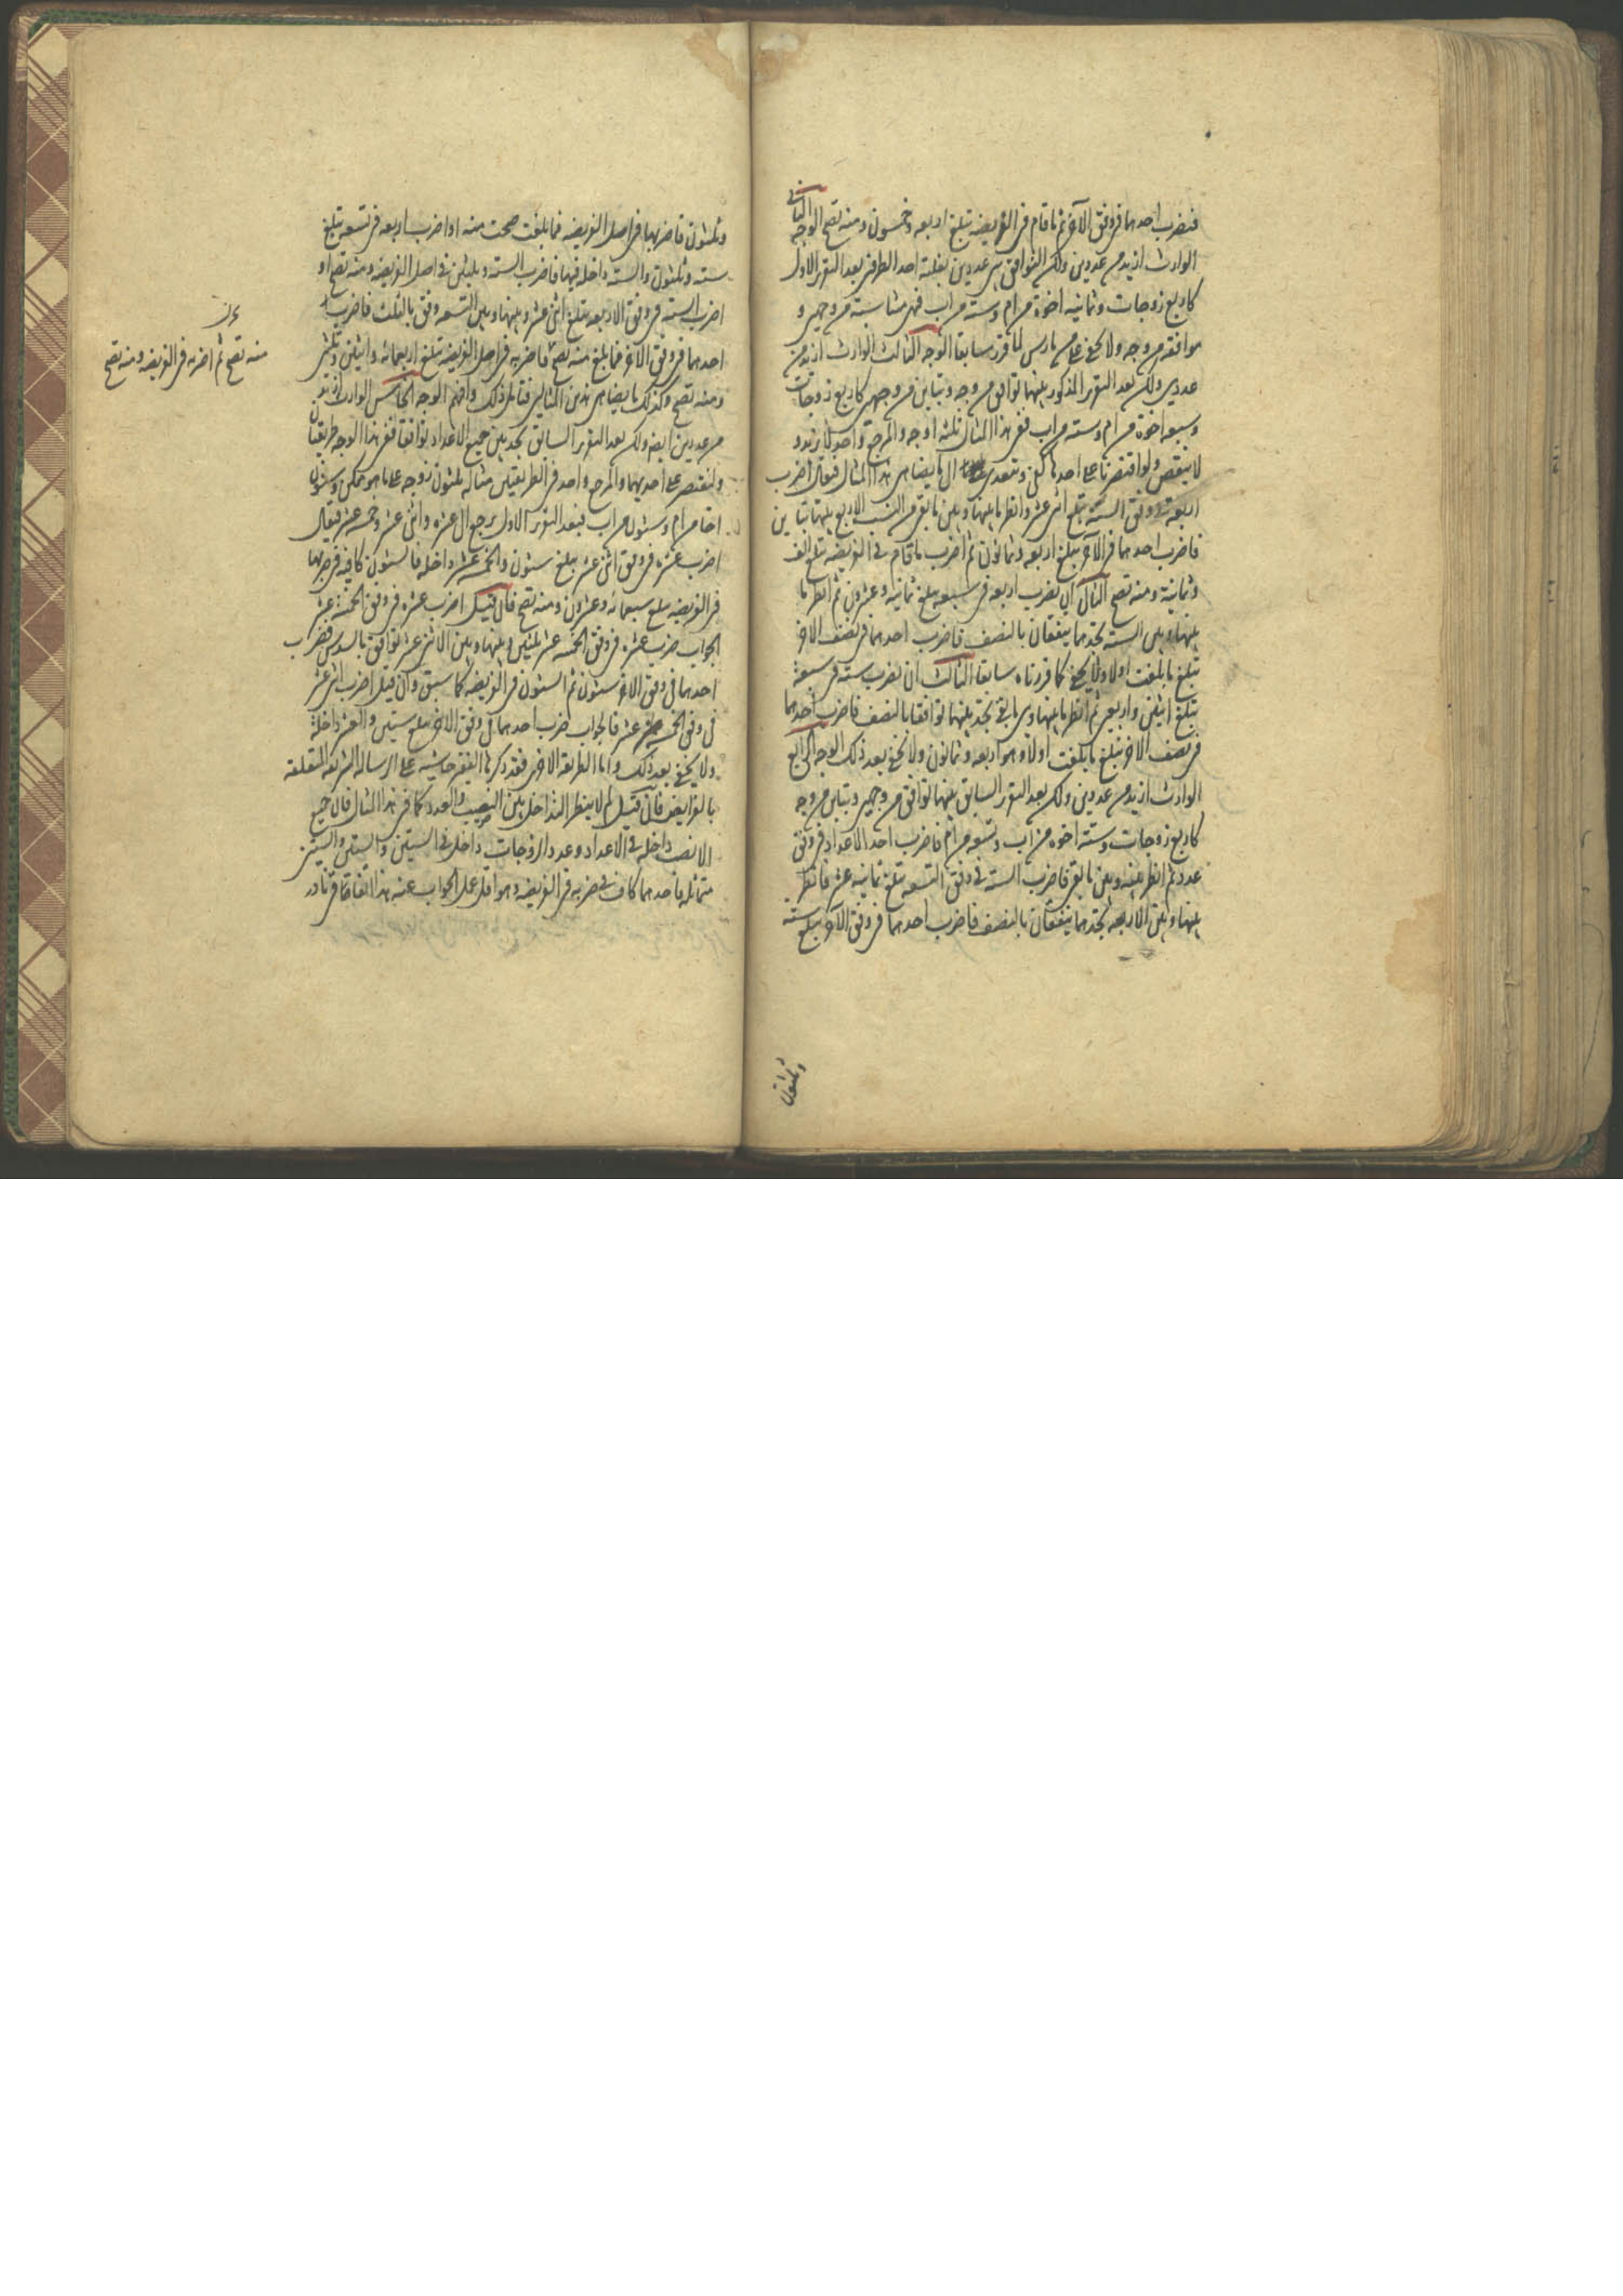 فنضرب احدهما فى وفق الآخر ثم ما قام فى الفريضه تبلغ اربعه وخمسون ومنه تصح الوجه الثانى
الوارث ازيد من عددين ولكن التوافق بين عددين بغلبة احد الطرفين بعد التقرر الاول
كاربع زوجات وثمانيه اخوة من ام وستة من اب فهى مشابهة من وجهين و
موافقه من وجه ولا يخفى على من مارس لما قرر سابقا الوجه الثالث الوارث ازيد من
عددين ولكن بعد التقرر المذكور بينهما توافق من وجه وتباين من وجهين كاربع زوجات
وسبعه اخوة من ام وسته من اب ففى هذا المثال ثلثه اوجه والمرجع واحد لا يزيد و
لا ينقص ولو اقتصرنا على احدها كفى ونتعدى الى ما يضاهى هذا المثال فيقال اضرب
اربعة فى وفق الستة تبلغ اثنى عشر وانظر ما بينها وبين ما بقى من النسب الاربع بينهما تباين
فاضرب احدهما فى الآخر تبلغ اربعه وثمانون ثم اضرب ما قام فى الفريضه تبلغ الف
وثمانية ومنه تصح الثانى ان تضرب اربعه فى سبعه تبلغ ثمانيه وعشرون ثم انظر ما
بينها وبين الستة تجدهما يتفقان بالنصف فاضرب احدهما فى نصف الآخر
تبلغ ما بلغت اولا ولا يخفى كما قررناه سابقا الثالث ان تضرب سته فى سبعة
تبلغ اثنين واربعين ثم انظر ما بينها وبين ما بقى تجد بينهما توافقا بالنصف فاضرب احدهما
فى نصف الآخر تبلغ ما بلغت اولا وهو اربعه وثمانون ولا يخفى بعد ذلك الوجه الرابع
الوارث ازيد من عددين ولكن بعد التقرر السابق بينهما توافق من وجهين وتباين من وجه
كاربع زوجات وستة اخوه من اب وتسعه من ام فاضرب احد الاعداد فى وفق
عدد ثم انظر بينه وبين ما بقى فاضرب الستة فى وفق التسعه تبلغ ثمانيه عشر فانظر
بينها وبين الاربعه تجدهما يتفقان بالنصف فاضرب احدهما فى وفق الآخر تبلغ ستة
وثلثون
وثلثون فاضربها فى اصل الفريضه فما بلغت صحت منه او اضرب اربعه فى تسعه تبلغ
سته وثلثون والسته داخله فيها فاضرب السته وثلثين فى اصل الفريضه ومنه تصح او
اضرب الستة فى وفق الاربعه تبلغ اثنى عشر وبينها وبين التسعه وفق بالثلث فاضرب
احدهما فى وفق الآخر فما بلغ منه تصح فاضربه فى اصل الفريضه تبلغ اربعمائه واثنين وثلثين
ومنه تصح وكذلك ما يضاهى هذين المثالين فتامل ذلك وافهم الوجه الخامس الوارث ازيد
من عددين ايضا ولكن بعد التقرر السابق تجد بين جميع الاعداد توافقا ففى هذا الوجه طريقتان
ولنقتصر على احديهما والمرجع واحد فى الطريقتين مثاله ثلثون زوجه على ما هو ممكن وستون
اخا من ام وستون من اب فبعد التقرر الاول يرجع الى عشره واثنى عشر وخمسه عشر فيقال
اضرب عشره فى وفق اثنى عشر يبلغ ستون والخمسه عشر داخله فالستون كافيه فى ضربها
فى الفريضه تبلغ سبعمائه وعشرون ومنه تصح فان قيل اضرب عشره فى وفق الخمسة عشر
الجواب ضرب عشره فى وفق الخمسه عشر ثلثين وبينها وبين الاثنى عشر توافق بالسدس فضرب
احدهما فى وفق الآخر ستون ثم الستون فى الفريضه كما سبق وان قيل اضرب اثنى عشر
فى وفق الخمسه عشر فالجواب ضرب احدهما فى وفق الآخر تبلغ ستين والعشر داخلة
ولا يخفى بعد ذلك واما الطريقه الاخرى فقد ذكرها الفقير حاشيه على الرساله الشريفه المتعلقه
بالفرايض فان قيل لم لا ينظر التداخل بين النصيب والعدد كما فى هذا المثال فان جميع
الانصب داخله فى الاعداد وعدد الزوجات داخل فى الستين والستين والستين
متماثله فاحدهما كاف فى ضربه فى الفريضه وهو اقل عمل الجواب عنه هذا اتفاقا قريا نادر
منه تصح ثم اضربه فى الفريضه ومنه تصح